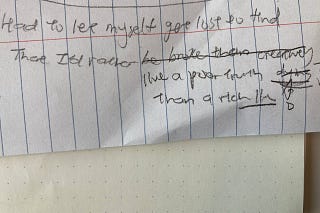 Had to let myself get lost to find
That I'd rather be broke than creatively
live a poor truth
than a rich lie
D